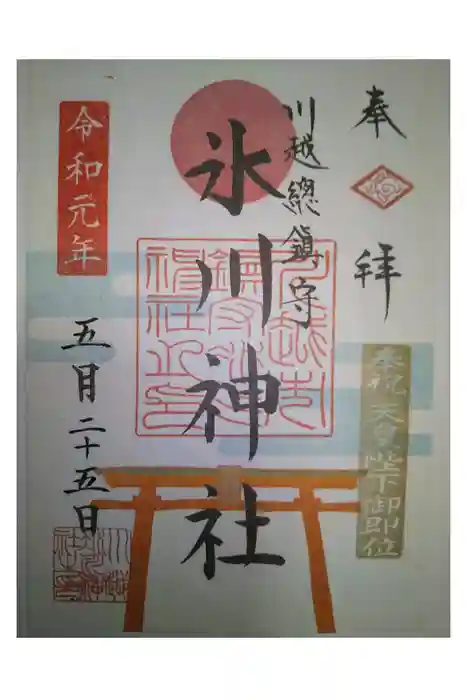 奉拝
川越總鎮守
氷川神社
令和元年
五月二十五日
奉祝 天皇陛下御即位